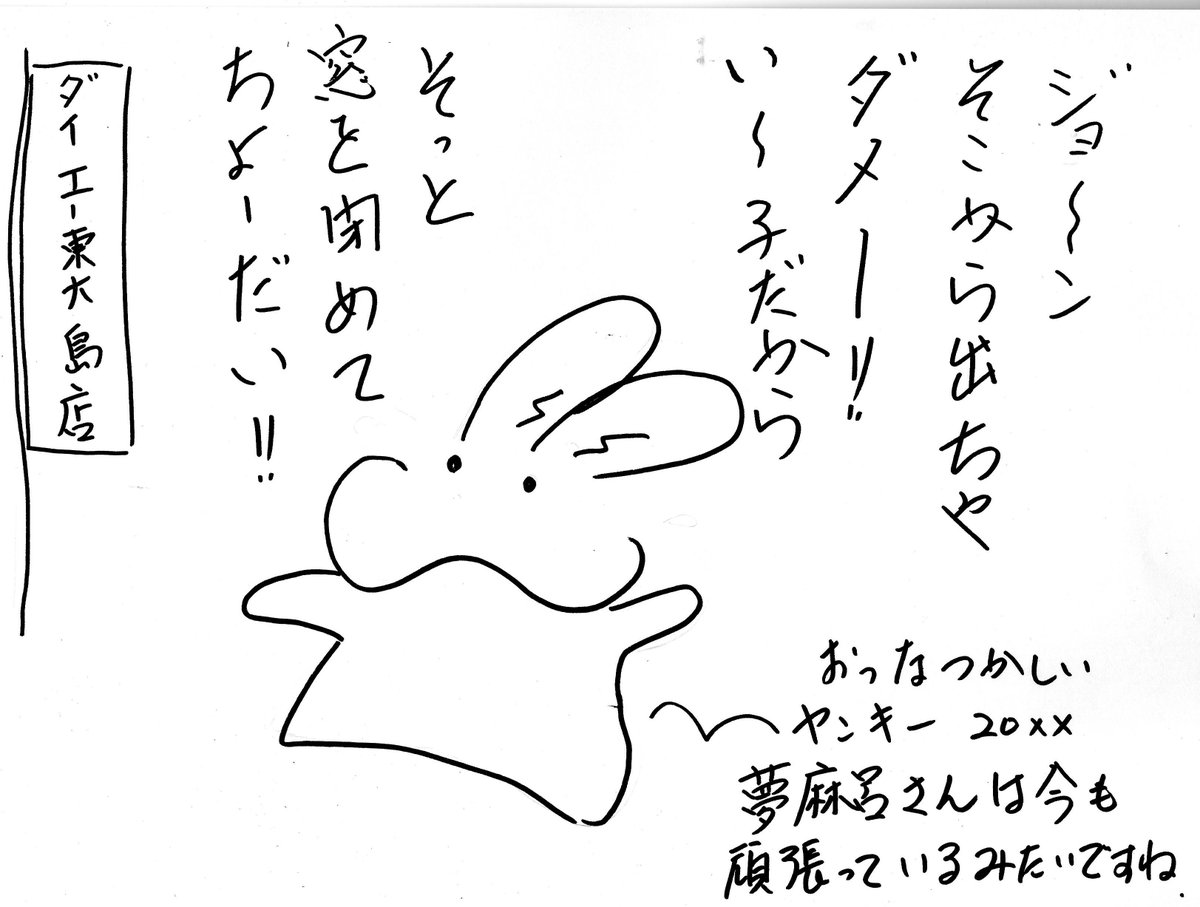 ジョ〜ン
そこから出ちゃ
ダメー!!
い〜子だから
そっと
窓を閉めて
ちょーだい!!
ダイエー東大島店
おっなつかしい
ヤンキー 20××
夢麻呂さんは今も
頑張っているみたいですね.